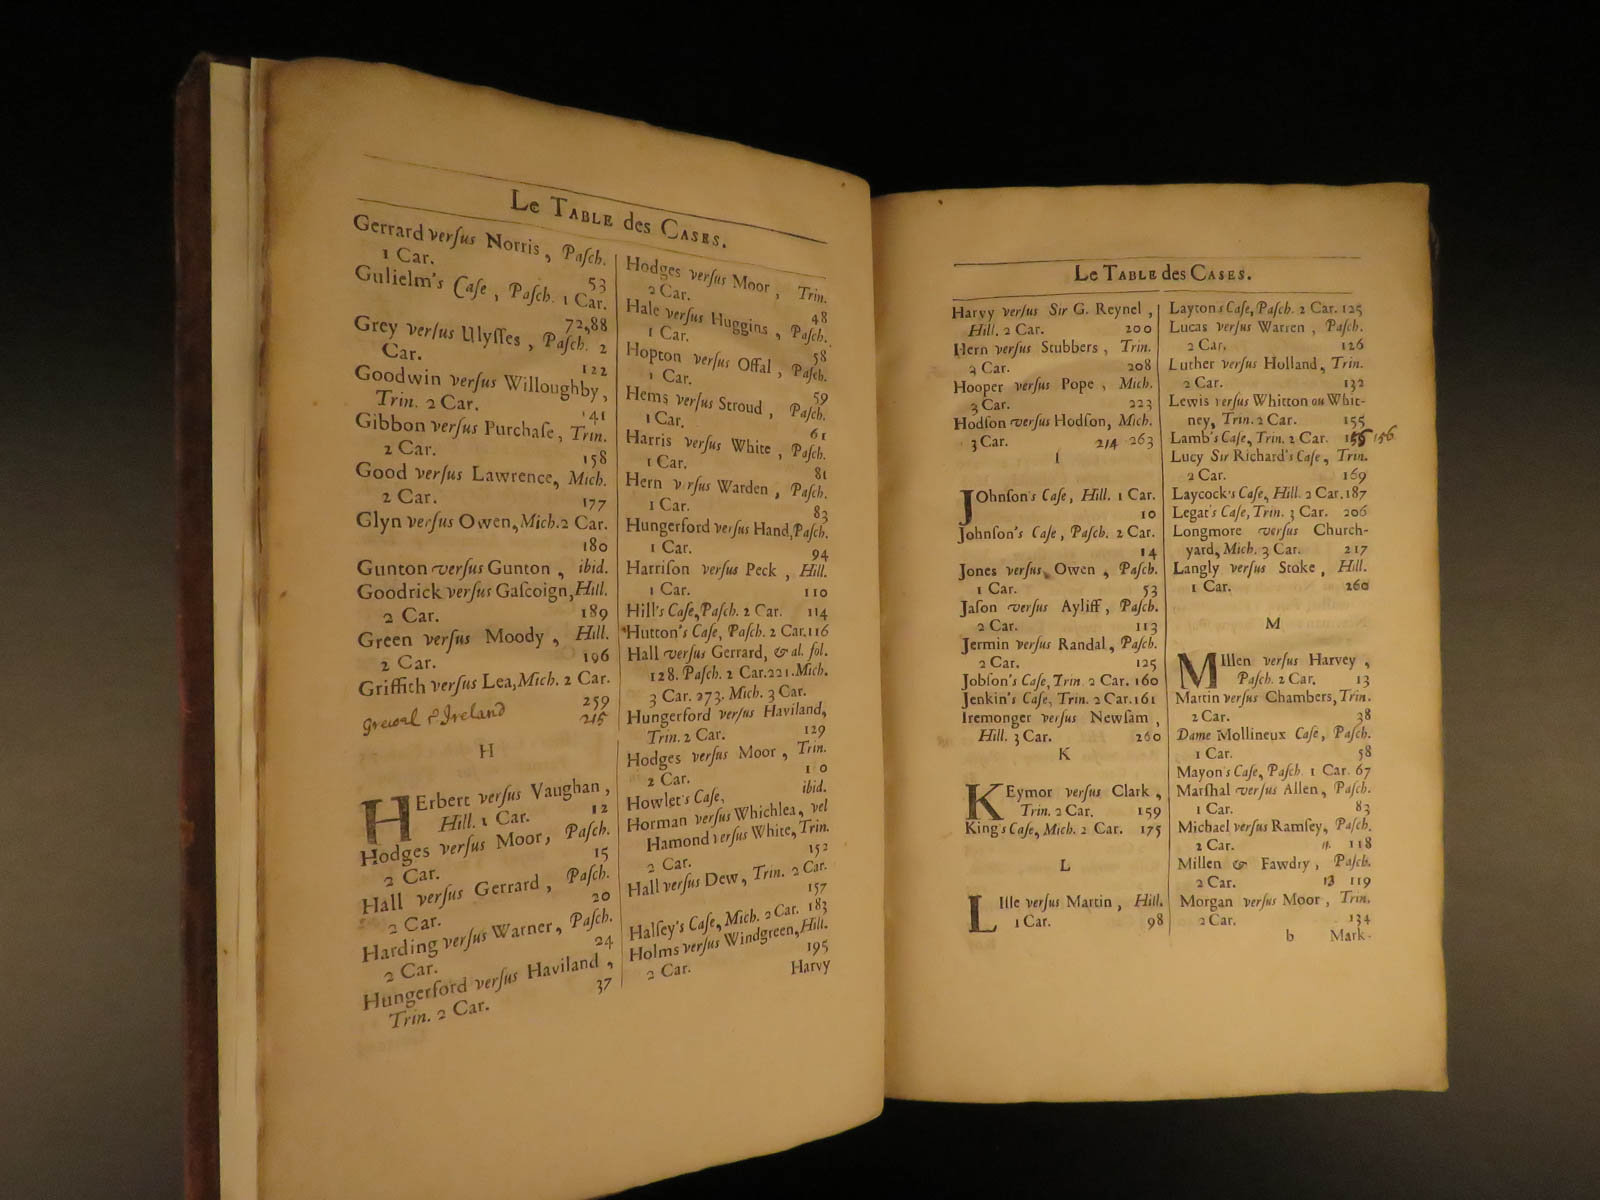 Le TABLE des CASES.
Gerrard verſus Norris, Paſch.
1 Car. 53
Gulielm's Caſe, Paſch. 1 Car.
72,88
Grey verſus Ulyſſes, Paſch. 2
Car. 122
Goodwin verſus Willoughby,
Trin. 2 Car. 141
Gibbon verſus Purchaſe, Trin.
2 Car. 158
Good verſus Lawrence, Mich.
2 Car. 177
Glyn verſus Owen, Mich. 2 Car.
180
Gunton verſus Gunton, ibid.
Goodrick verſus Gaſcoign, Hill.
2 Car. 189
Green verſus Moody, Hill.
2 Car. 196
Griffith verſus Lea, Mich. 2 Car.
259
Ireland 215
H
HErbert verſus Vaughan,
Hill. 1 Car. 12
Hodges verſus Moor, Paſch.
2 Car. 15
Hall verſus Gerrard, Paſch.
2 Car. 20
Harding verſus Warner, Paſch.
2 Car. 24
Hungerford verſus Haviland,
Trin. 2 Car. 37
Hodges verſus Moor, Trin.
2 Car. 48
Hale verſus Huggins, Paſch.
1 Car. 58
Hopton verſus Offal, Paſch.
1 Car. 59
Hems verſus Stroud, Paſch.
1 Car. 61
Harris verſus White, Paſch.
1 Car. 81
Hern verſus Warden, Paſch.
1 Car. 83
Hungerford verſus Hand, Paſch.
1 Car. 94
Harriſon verſus Peck, Hill.
1 Car. 110
Hill's Caſe, Paſch. 2 Car. 114
Hutton's Caſe, Paſch. 2 Car. 116
Hall verſus Gerrard, & al. fol.
128. Paſch. 2 Car. 221. Mich.
3 Car. 273. Mich. 3 Car.
Hungerford verſus Haviland,
Trin. 2 Car. 129
Hodges verſus Moor, Trin.
2 Car. 1 0
Howlet's Caſe, ibid.
Horman verſus Whichlea, vel
Hamond verſus White, Trin.
2 Car. 152
Hall verſus Dew, Trin. 2 Car.
157
Halſey's Caſe, Mich. 2 Car. 183
Holms verſus Windgreen, Hill.
2 Car. 195
Harvy
Le TABLE des CASES.
Harvy verſus Sir G. Reynel,
Hill. 2 Car. 200
Hern verſus Stubbers, Trin.
3 Car. 208
Hooper verſus Pope, Mich.
3 Car. 223
Hodſon verſus Hodſon, Mich.
3 Car. 214 263
I
JOhnſon's Caſe, Hill. 1 Car.
10
Johnſon's Caſe, Paſch. 2 Car.
14
Jones verſus Owen, Paſch.
1 Car. 53
Jaſon verſus Ayliff, Paſch.
2 Car. 113
Jermin verſus Randal, Paſch.
2 Car. 125
Jobſon's Caſe, Trin. 2 Car. 160
Jenkin's Caſe, Trin. 2 Car. 161
Iremonger verſus Newſam,
Hill. 3 Car. 260
K
KEymor verſus Clark,
Trin. 2 Car. 159
King's Caſe, Mich. 2 Car. 175
L
LIſle verſus Martin, Hill.
1 Car. 98
Layton's Caſe, Paſch. 2 Car. 125
Lucas verſus Warren, Paſch.
2 Car. 126
Luther verſus Holland, Trin.
2 Car. 132
Lewis verſus Whitton ou Whit-
ney, Trin. 2 Car. 155
Lamb's Caſe, Trin. 2 Car. 156 156
Lucy Sir Richard's Caſe, Trin.
2 Car. 169
Laycock's Caſe, Hill. 2 Car. 187
Legat's Caſe, Trin. 3 Car. 206
Longmore verſus Church-
yard, Mich. 3 Car. 217
Langly verſus Stoke, Hill.
1 Car. 260
M
MIllen verſus Harvey,
Paſch. 2 Car. 13
Martin verſus Chambers, Trin.
2 Car. 38
Dame Mollineux Caſe, Paſch.
1 Car. 58
Mayon's Caſe, Paſch. 1 Car. 67
Marſhal verſus Allen, Paſch.
1 Car. 83
Michael verſus Ramſey, Paſch.
2 Car. 118
Millen & Fawdry, Paſch.
2 Car. 13 119
Morgan verſus Moor, Trin.
2 Car. 134
b Mark-